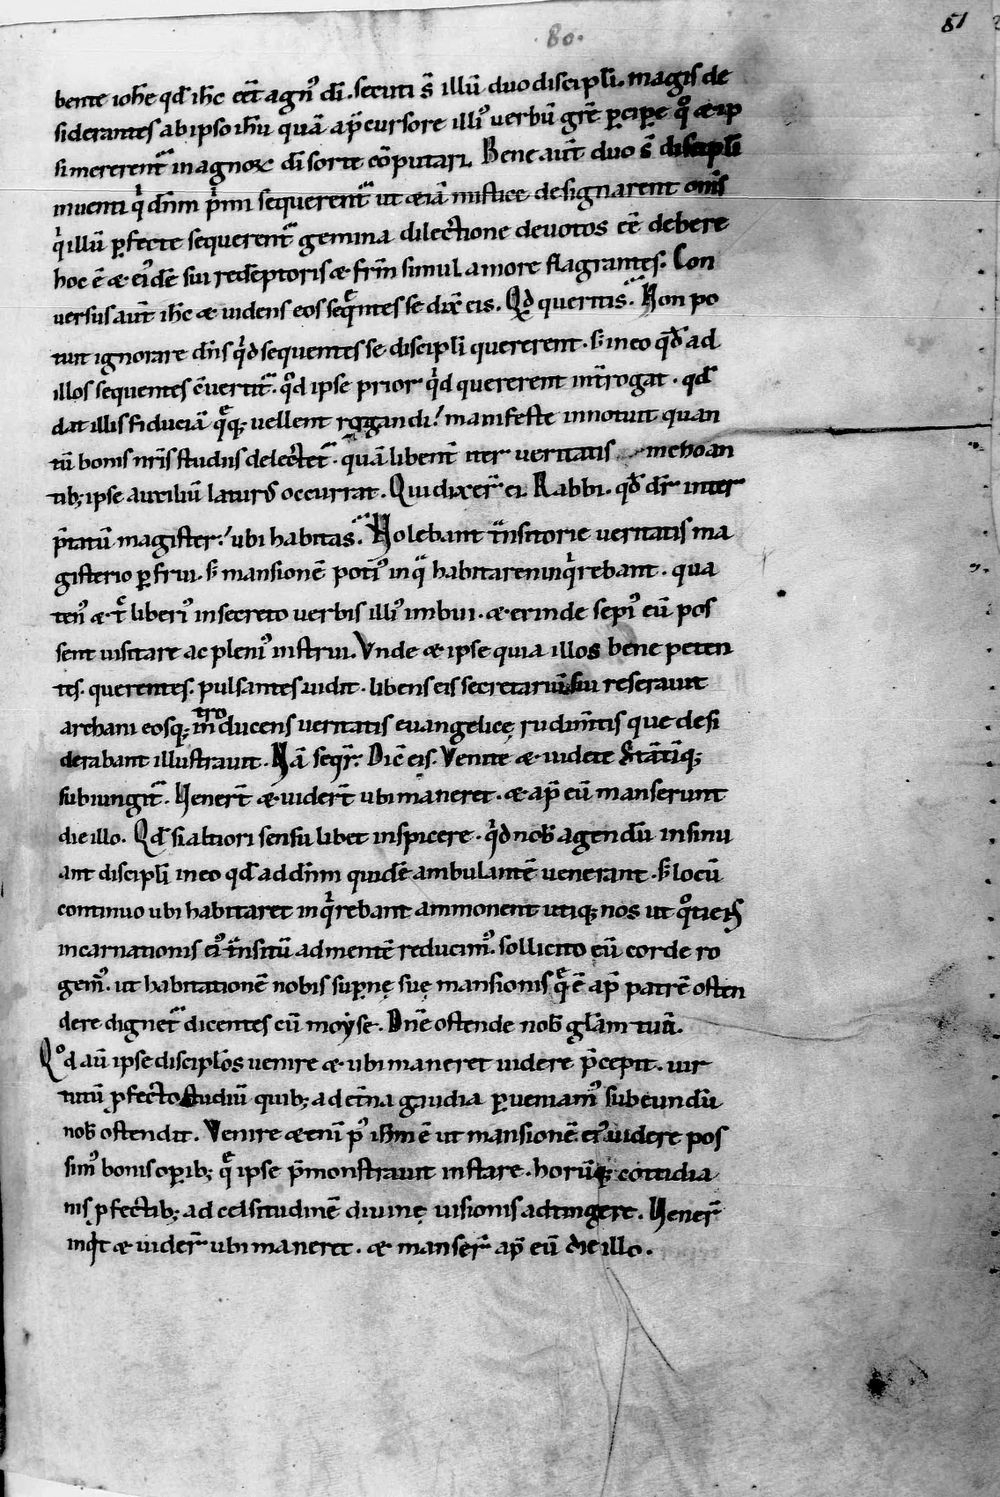 80.
51
bente ioh̅e qd̅ ih̅c eēt agn᾽ di̅. secuti s̅ illū duo discipl̅i. magis de
siderantes ab ipso ih̅u quā ap̅cursore illi᾽ verbū gr̅e p̱cip̱e qͦ & ip
si mererent᾽ in agnoꝝ di̅ sorte cōputari. Bene aut̅ duo s̅ discipl̅i
inuenti qⁱ dn̅m pⁱmi sequerent᾽ ut &iā mistice designarent om̅s
qⁱ illū p̱fecte sequerent᾽ gemina dilectione deuotos eē debere
hoc ē & ei᾽dē sui redēptoris & fr̅m simul amore flagrantes. Con
uersus aut̅ ih̅c & uidens eos seqͤntes se dix̅ eis. Qd̅ queritis. Non po
tuit ignorare dn̅s qⁱd sequentes se discipl̅i quererent. s; in eo qd̅ ad
illos sequentes cōuertit᾽. qͦd ipse prior qⁱd quererent int̅rogat. qd̅
dat illis fiduciā qͤq; uellent rogandi! manifeste innotuit quan
tū bonis nr̅is studiis delectet᾽. quā libent̅ iter ueritatis inchoan
tib; ipse auxiliū laturus occurrat. Qui dixer̅ ei. Rabbi. qd̅ dr̅ inter
p̅tatū magister! ubi habitas. Nolebant t̅nsitorie ueritatis ma
gisterio p̱frui. s; mansionē poti᾽ in qͣ habitaret inqⁱrebant. qua
ten᾽ & t̅c liberi᾽ in secreto uerbis illi᾽ imbui. & exinde sepi᾽ eū pos
sent uisitare ac pleni᾽ instrui. Vnde & ipse quia illos bene peten
tes. querentes. pulsantes uidit. libens eis secretariū sui reserauit
archani eosq; introducens ueritatis euangelicę rudim̅tis que desi
derabant illustrauit. Nā seqr̅. Dic̅ eis. Venite & uidete Statī q;
subiungit᾽. Uener̅t & uider̅t ubi maneret. & ap̅ eū manserunt
die illo. Qd̅ si altiori sensu libet inspicere. qⁱd nob̅ agendū insinu
ant discipl̅i in eo qd̅ ad dn̅m quidē ambulantē uenerant. s; locū
continuo ubi habitaret inqⁱrebant ammonent utiq; nos ut qͦtiens
incarnationis ei᾽ t̅nsitū ad mentē reducim᾽. sollicito eū corde ro
gem᾽. ut habitationē nobis sup̱nę suę mansionis qͤ ē ap̅ patrē osten
dere dignet᾽ dicentes cū moẏse. Dn̅e ostende nob̅ gl̅am tuā.
Qͦd aū ipse discipl̅os uenire & ubi maneret uidere p̅cepit. uir
tutū p̱fecto studiū quib; ad et̅na gaudia p̱ueniam᾽ subeundū
nob̅ ostendit. Venire &enī p᾽ ih̅m ē ut mansionē ei᾽ uidere pos
sim᾽ bonis op̱ib; qͤ ipse p̅monstrauit instare. horūq; cotidia
nis p̱fectib; ad celsitudinē diuinę uisionis adtingere. Uener̅
inqⁱt & uider̅ ubi maneret. & manser̅ ap̅ eū die illo.